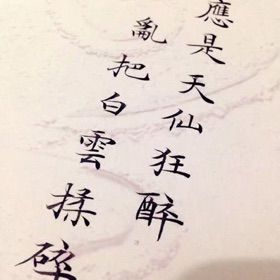 應是天仙狂醉
亂把白雲揉碎